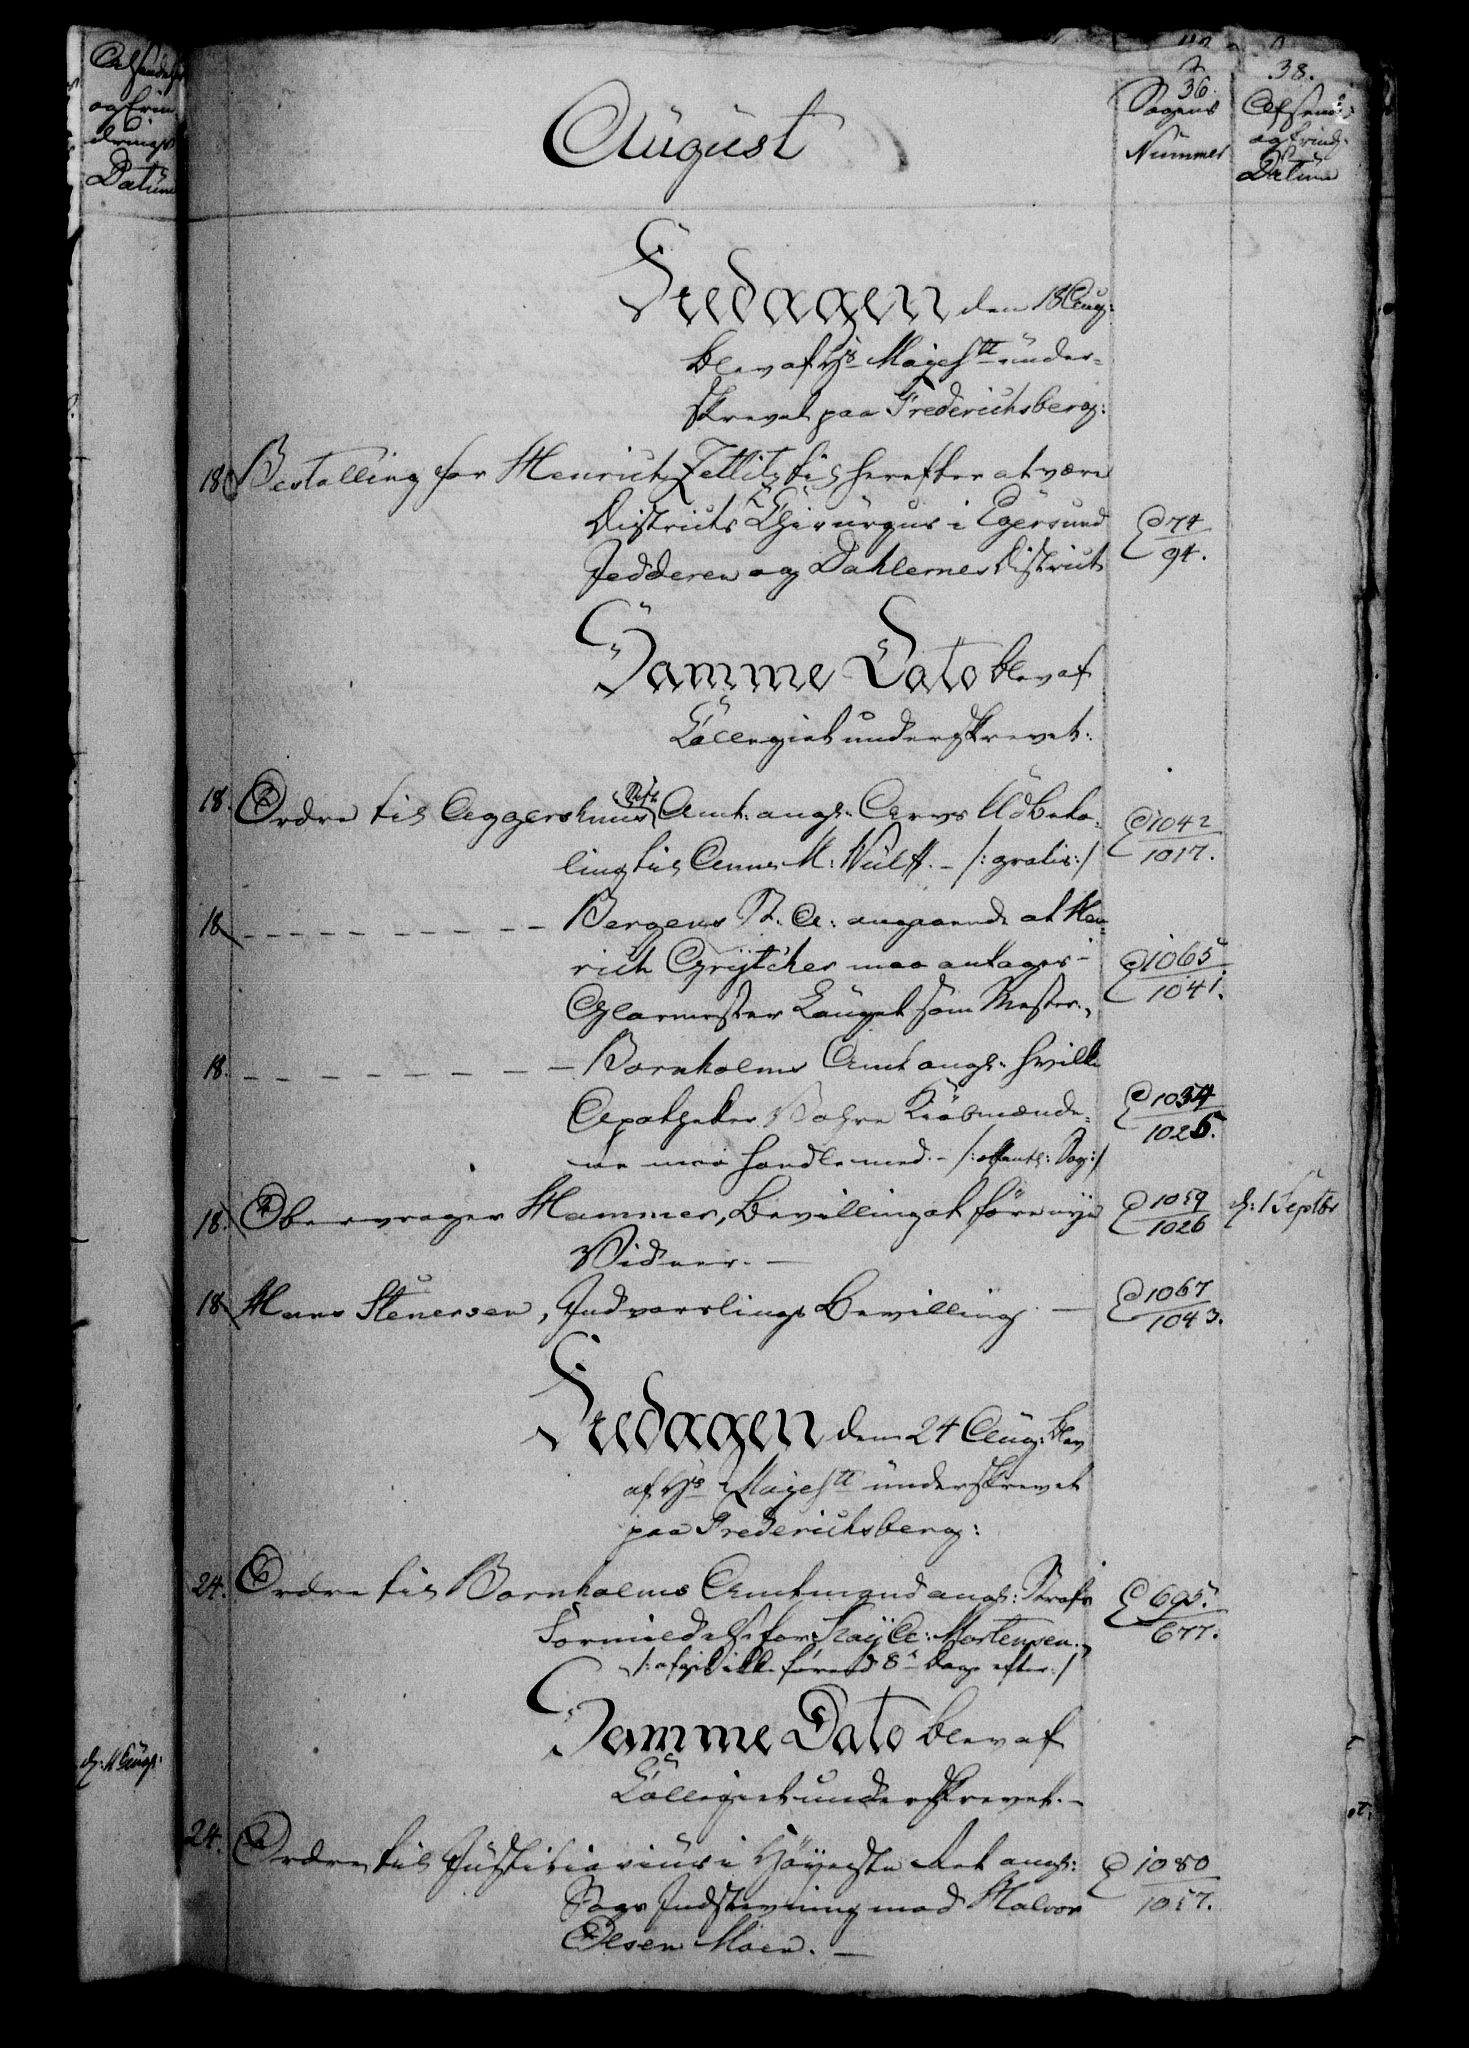 Afsendelses
og Erin
drings
Datum
36.
38.
August
Sagens
Nummer
Afsend:
og Erind:
Datum
Fredagen den 18 Aug:
blev af Hs Majestt under-
skrevet paa Frederichsberg:
18. Bestalling for Henrich Zetlitz til herefter at være
Districts Chirurgus i Egersund
Jedderen og Dahlernes District
E 74
94.
Samme Dato blev af
Collegiet underskrevet:
18. Ordre til Aggershuus Stift Amt: angl: Arvs Udbeta-
ling til Anne M: Wulff. – /: gratis:/
E 1042
1017.
18 – – – – – – – – Bergens St. A: angaaende at Hen-
rich Grytcher maa antages i
Glarmester Lauget som Mester.
E 1065
1041.
18. – – – – – – – – Bornholms Amt angl: hvilke
Apotheker Kiøbmænde-
ne maa handle med. – /: offentl: Sag:/
E 1034
1025.
18. Obervrager Hammer, Bevilling at føre nye
Vidner. –
E 1059
1026
d: 1 Septbr
18 Hans Stenersen, Indvarslings Bevilling. –
E 1067
1043.
Fredagen den 24 Aug: blev
af Hs Majestt underskrevet
paa Frederichsberg:
24. Ordre til Bornholms Amtmand angl: Straf
Formildelse for A: Mortensen.
/: afgik ikke førend 8te Dage efter:/
E 695.
677.
Samme Dato blev af
Collegiet underskrevet. –
d: 11 Aug:
24. Ordre til Justitiarius i Høyeste Ret angl:
Sags Indstevning mod Halvor
Olsen Moen. –
E 1080
1057.